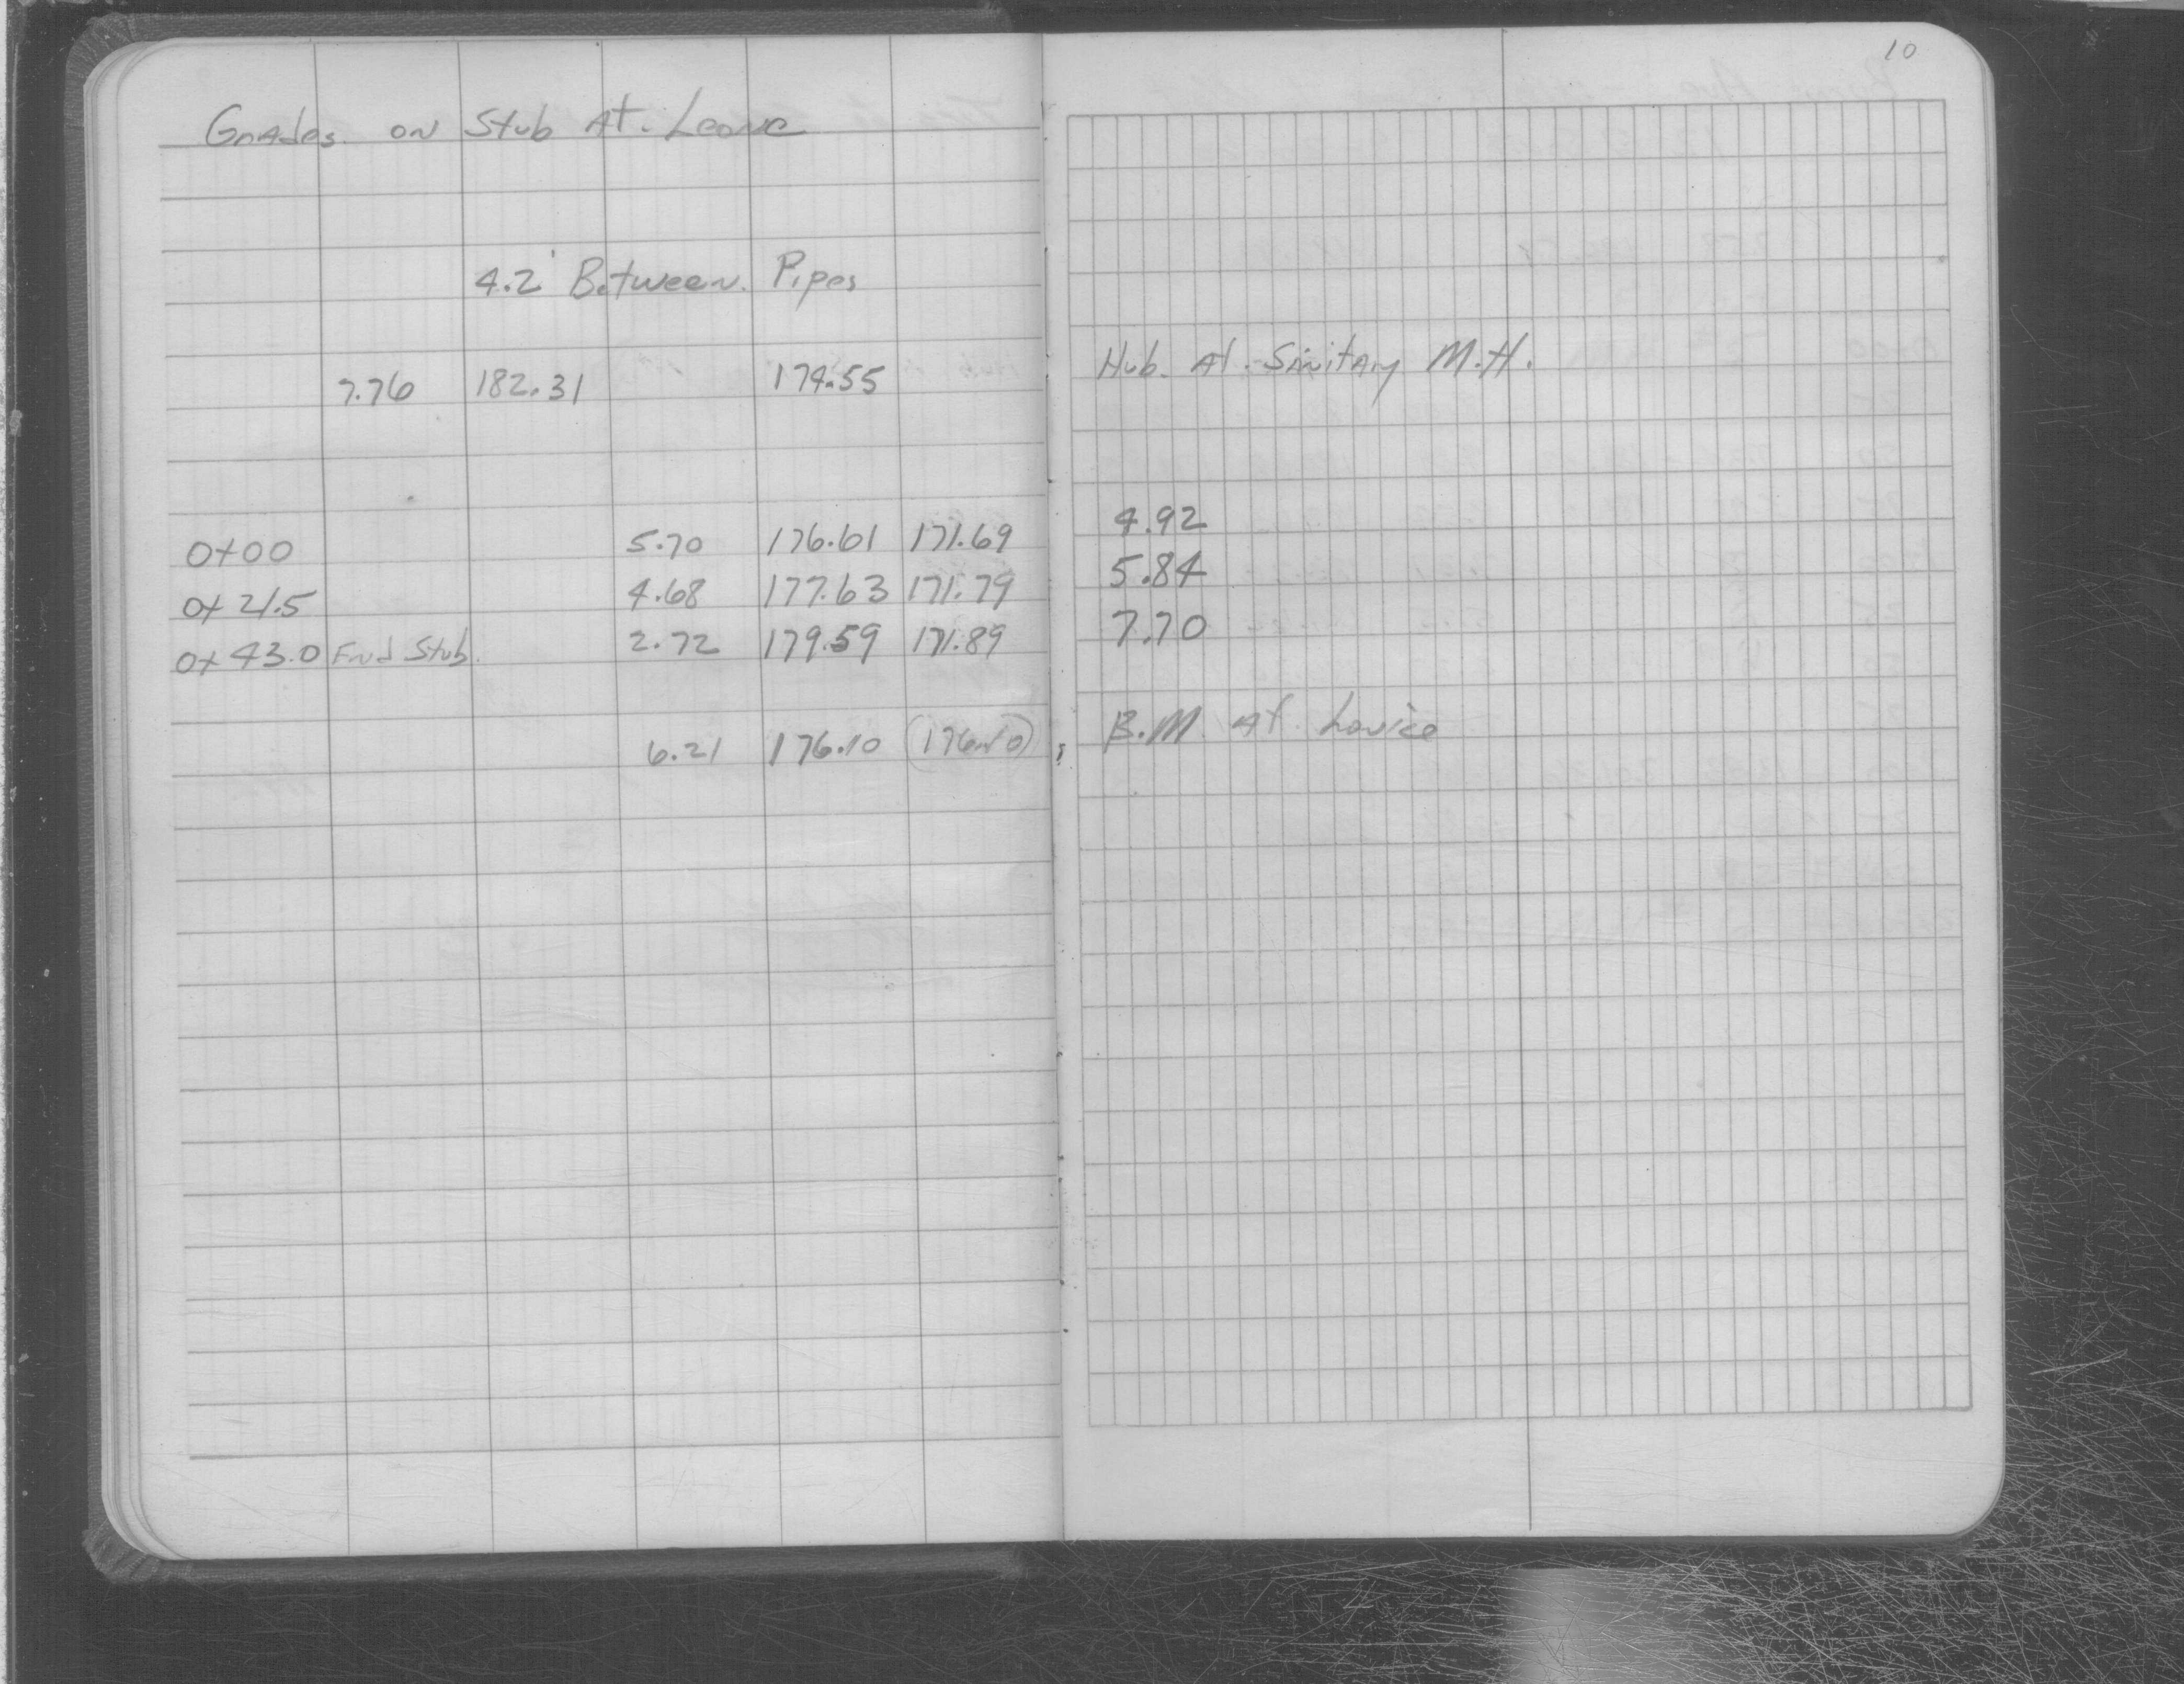 10
Grades on Stub At. Leone
4.2' Between Pipes
7.76 182.31 174.55 Hub. At. Sanitary M.H.
0+00 5.70 176.61 171.69 4.92
0+21.5 4.68 177.63 171.79 5.84
0+43.0 End Stub. 2.72 179.59 171.89 7.70
6.21 176.10 (176.10) B.M. At Louice